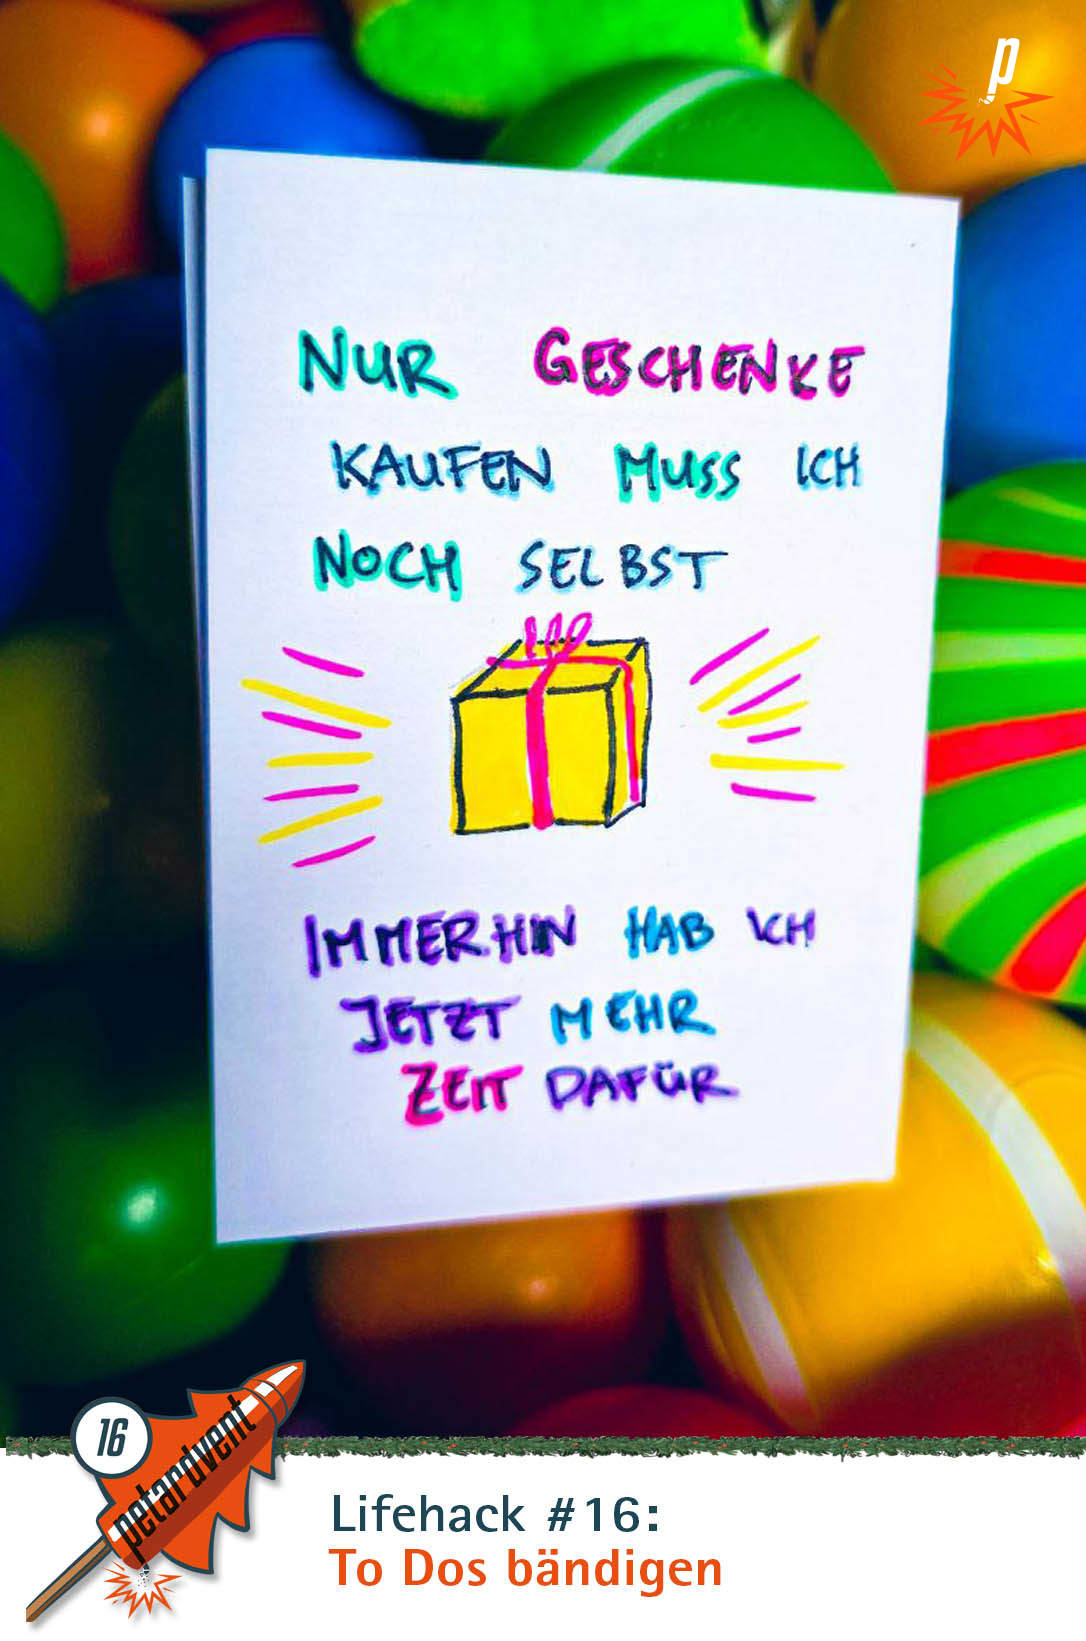 p
NUR GESCHENKE
KAUFEN MUSS ICH
NOCH SELBST
IMMERHIN HAB ICH
JETZT MEHR
ZEIT DAFÜR
16
petardvent
Lifehack #16:
To Dos bändigen